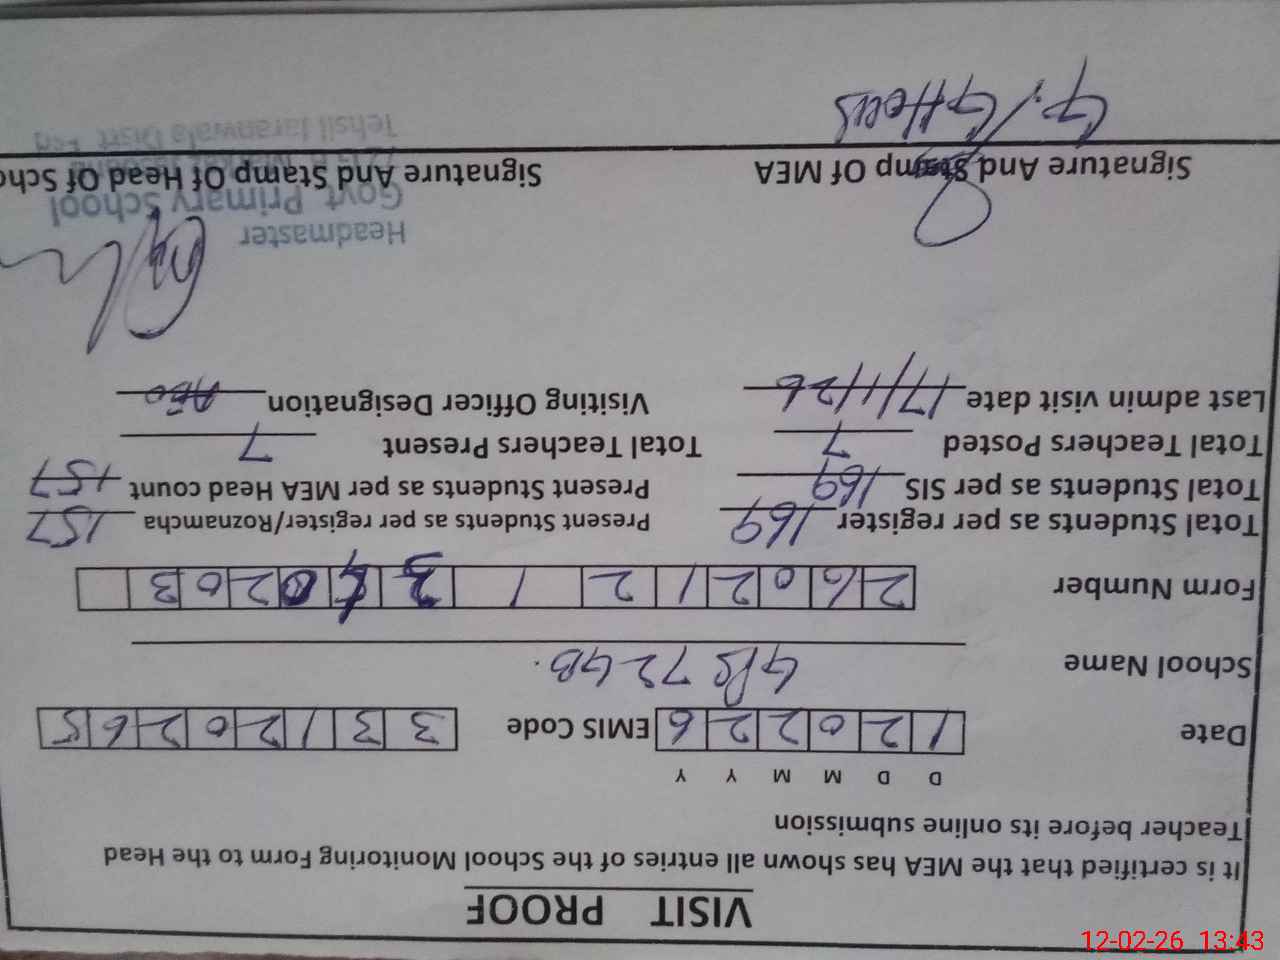 VISIT PROOF
It is certified that the MEA has shown all entries of the School Monitoring Form to the Head
Teacher before its online submission
D D M M Y Y
Date 1 2 0 2 2 6 EMIS Code 3 3 1 2 0 2 6 5
School Name GPS 72 GB.
Form Number 2 6 0 2 1 2 1 0 2 0 3
Total Students as per register 169 Present Students as per register/Roznamcha 157
Total Students as per SIS 169 Present Students as per MEA Head count 157
Total Teachers Posted 7 Total Teachers Present 7
Last admin visit date 17/1/26 Visiting Officer Designation AEO
Headmaster
Govt. Primary School
Signature And Stamp Of MEA Signature And Stamp Of Head Of Scho
Tehsil Jaranwala Distt Fsd
12-02-26 13:43